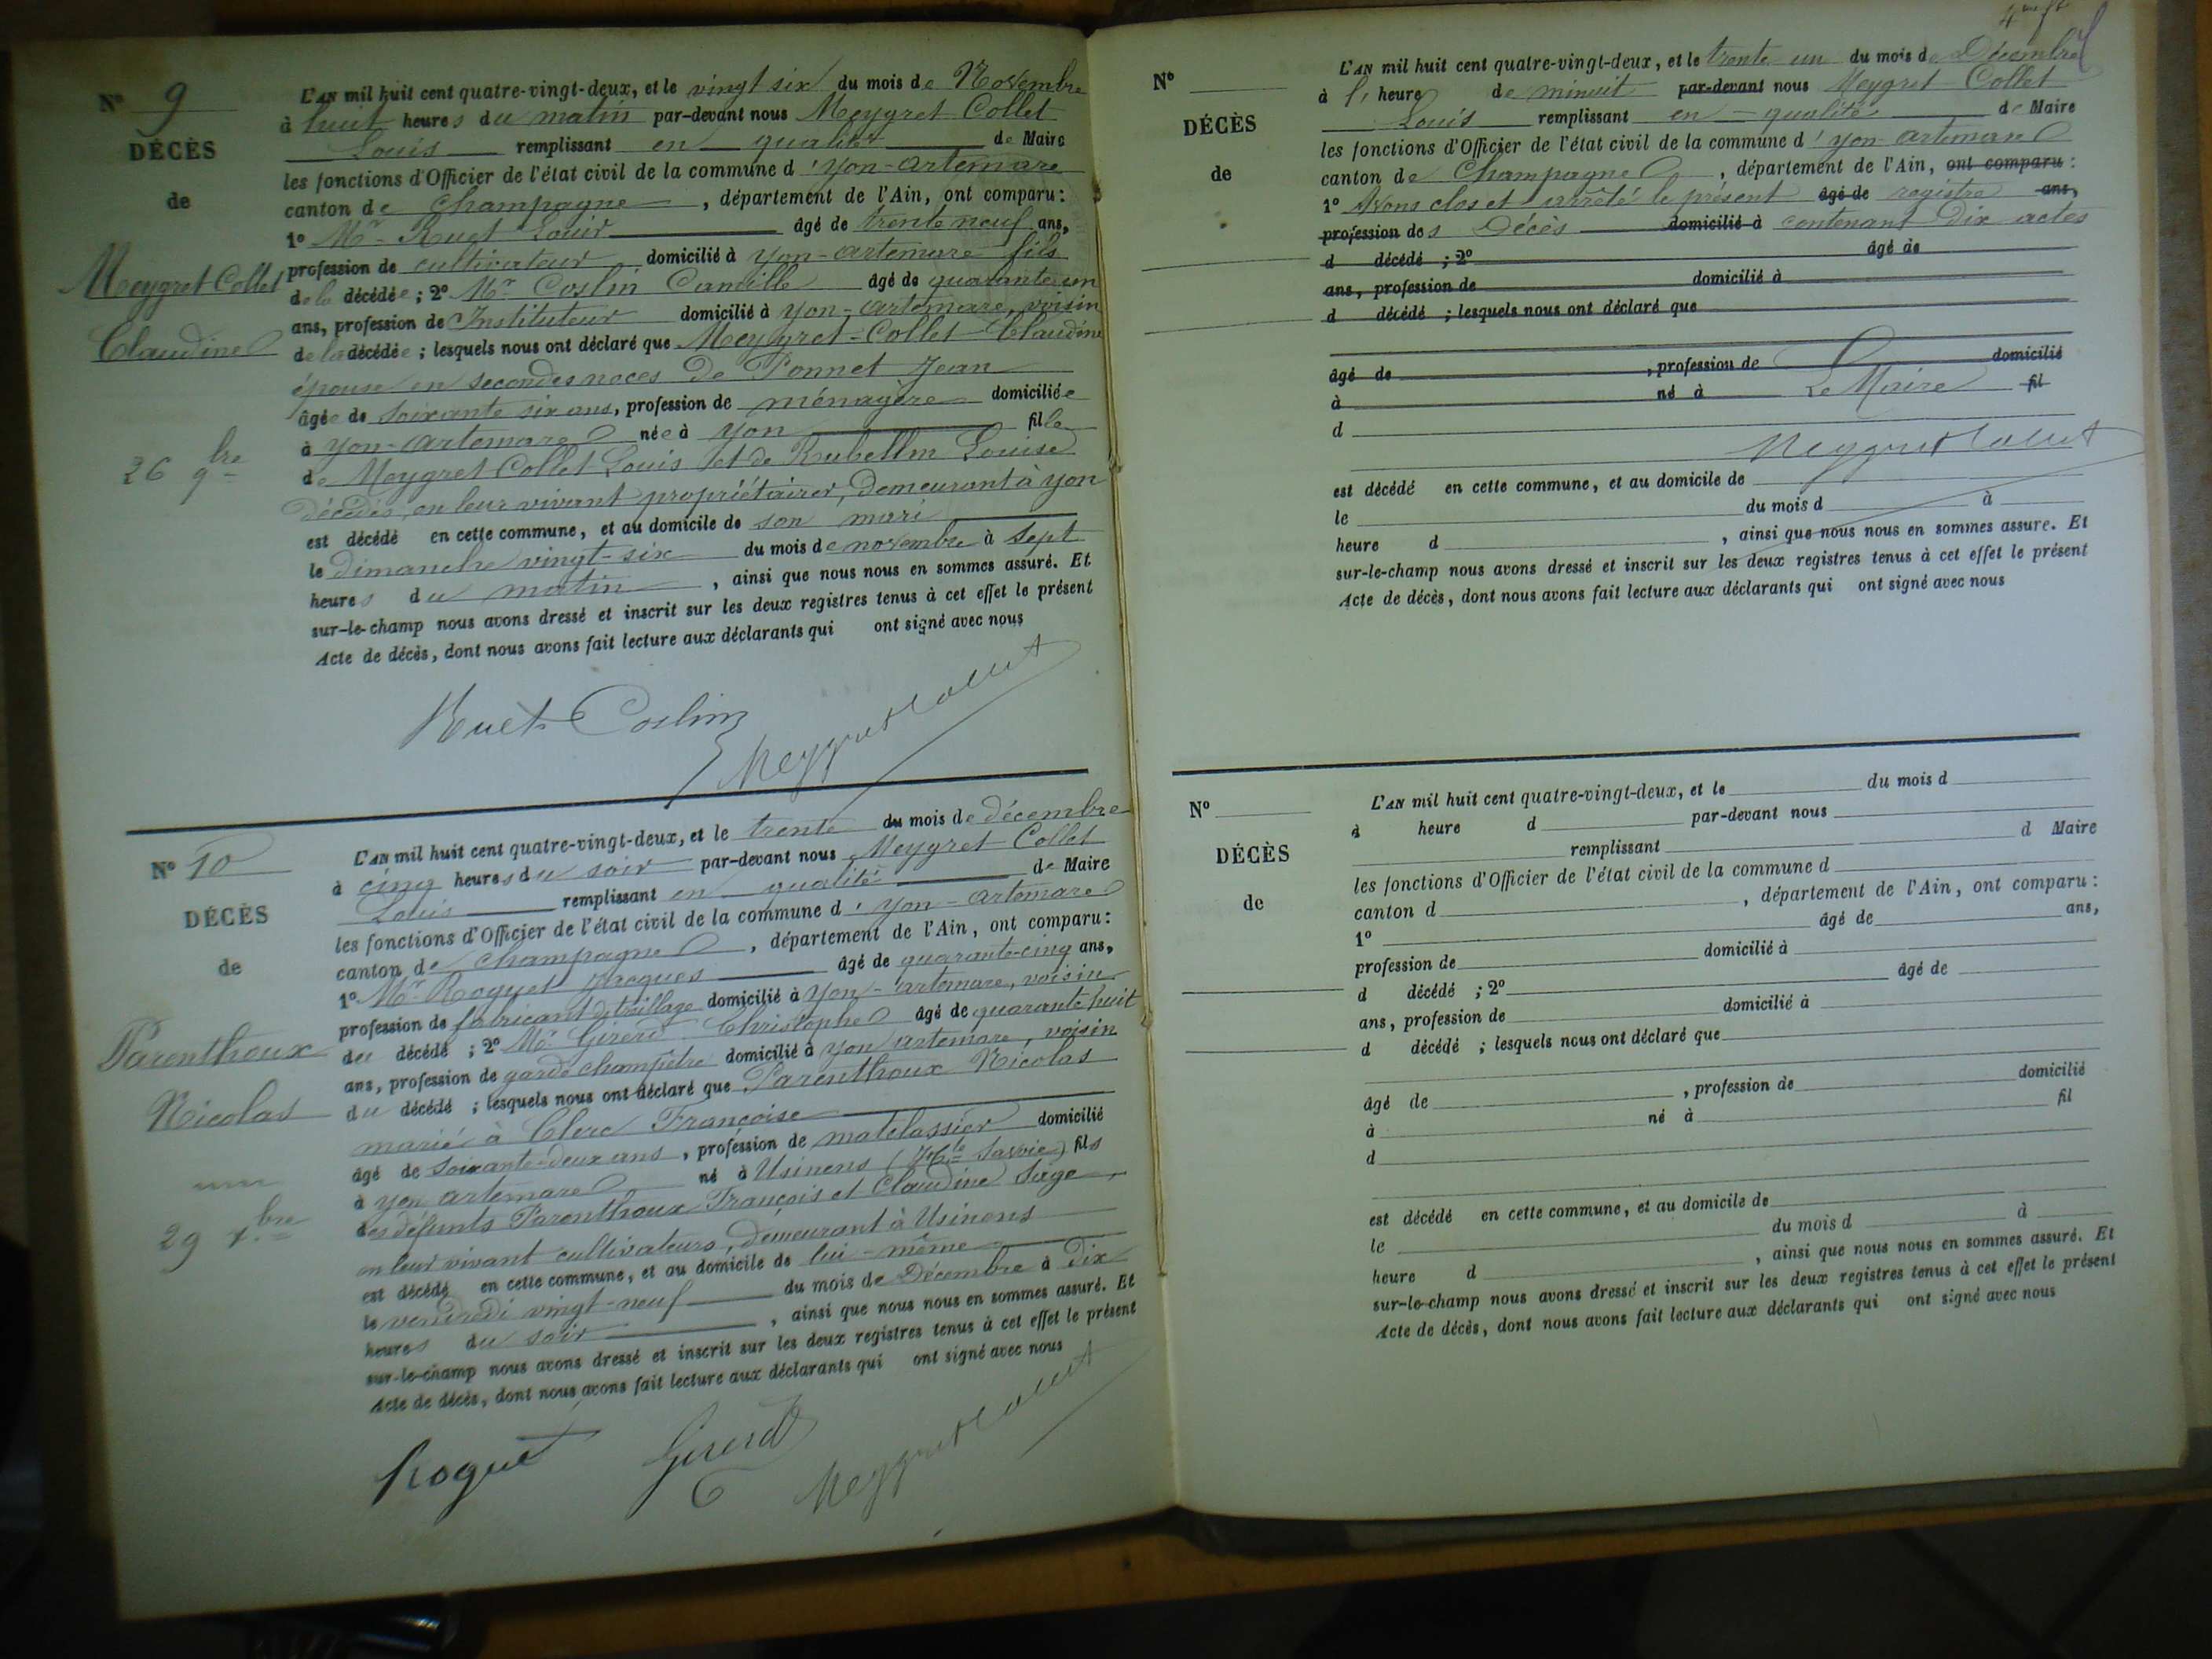 N° 9
DÉCÈS
de
Meygret Collet
Claudine
26 9bre
L'AN mil huit cent quatre-vingt-deux, et le vingt six du mois de Novembre
à huit heures du matin par-devant nous Meygret Collet
Louis remplissant en qualité de Maire
les fonctions d'Officier de l'état civil de la commune d'yon-artemare
canton de Champagne, département de l'Ain, ont comparu:
1° Mr Ruet Louis âgé de trente neuf ans,
profession de cultivateur domicilié à yon-artemare fils
de la décédée; 2° Mr Coslin Camille âgé de quarante un
ans, profession de Instituteur domicilié à yon-artemare, voisin
de la décédée; lesquels nous ont déclaré que Meygret-Collet Claudine
épouse en secondes noces de Ponnet Jean
âgée de soixante six ans, profession de ménagère domiciliée
à yon-artemare née à yon fille
de Meygret Collet Louis et de Rubellin Louise
décédés, en leur vivant propriétaires, demeurant à yon
est décédé en cette commune, et au domicile de son mari
le dimanche vingt-six du mois de novembre à sept
heures du matin, ainsi que nous nous en sommes assuré. Et
sur-le-champ nous avons dressé et inscrit sur les deux registres tenus à cet effet le présent
Acte de décès, dont nous avons fait lecture aux déclarants qui ont signé avec nous
Ruet Coslin
Meygret Collet
N° 10
DÉCÈS
de
Parenthoux
Nicolas
29 xbre
L'AN mil huit cent quatre-vingt-deux, et le trente du mois de décembre
à cinq heures du soir par-devant nous Meygret Collet
Louis remplissant en qualité de Maire
les fonctions d'Officier de l'état civil de la commune d'yon-artemare
canton de Champagne, département de l'Ain, ont comparu:
1° Mr Roguet Jacques âgé de quarante-cinq ans,
profession de fabricant de treillage domicilié à yon-artemare, voisin
du décédé; 2° Mr Girerd Christophe âgé de quarante huit
ans, profession de garde champêtre domicilié à yon artemare, voisin
du décédé; lesquels nous ont déclaré que Parenthoux Nicolas
marié à Clerc Françoise
âgé de soixante-deux ans, profession de matelassier domicilié
à yon artemare né à Usinens (Hte Savoie) fils
des défunts Parenthoux François et Claudine Sage,
en leur vivant cultivateurs, demeurant à Usinens
est décédé en cette commune, et au domicile de lui-même
le vendredi vingt-neuf du mois de Décembre à dix
heures du soir, ainsi que nous nous en sommes assuré. Et
sur-le-champ nous avons dressé et inscrit sur les deux registres tenus à cet effet le présent
Acte de décès, dont nous avons fait lecture aux déclarants qui ont signé avec nous
Roguet Girerd Meygret Collet
N°
DÉCÈS
de
L'AN mil huit cent quatre-vingt-deux, et le trente un du mois de Décembre
à l' heure de minuit par-devant nous Meygret Collet
Louis remplissant en qualité de Maire
les fonctions d'Officier de l'état civil de la commune d'yon-artemare
canton de Champagne, département de l'Ain, ont comparu:
1° Avons clos et arrêté le présent âgé de registre ans,
profession des Décès domicilié à contenant Dix actes
d décédé ; 2° âgé de
ans, profession de domicilié à
d décédé ; lesquels nous ont déclaré que
âgé de , profession de domicilié
à né à Le Maire fil
d
Meygret Collet
est décédé en cette commune, et au domicile de
le du mois d à
heure d , ainsi que nous nous en sommes assuré. Et
sur-le-champ nous avons dressé et inscrit sur les deux registres tenus à cet effet le présent
Acte de décès, dont nous avons fait lecture aux déclarants qui ont signé avec nous
N°
DÉCÈS
de
L'AN mil huit cent quatre-vingt-deux, et le du mois d
à heure d par-devant nous
remplissant d Maire
les fonctions d'Officier de l'état civil de la commune d
canton d , département de l'Ain, ont comparu:
1° âgé de ans,
profession de domicilié à
d décédé ; 2° âgé de
ans, profession de domicilié à
d décédé ; lesquels nous ont déclaré que
âgé de , profession de domicilié
à né à fil
d
est décédé en cette commune, et au domicile de
le du mois d à
heure d , ainsi que nous nous en sommes assuré. Et
sur-le-champ nous avons dressé et inscrit sur les deux registres tenus à cet effet le présent
Acte de décès, dont nous avons fait lecture aux déclarants qui ont signé avec nous